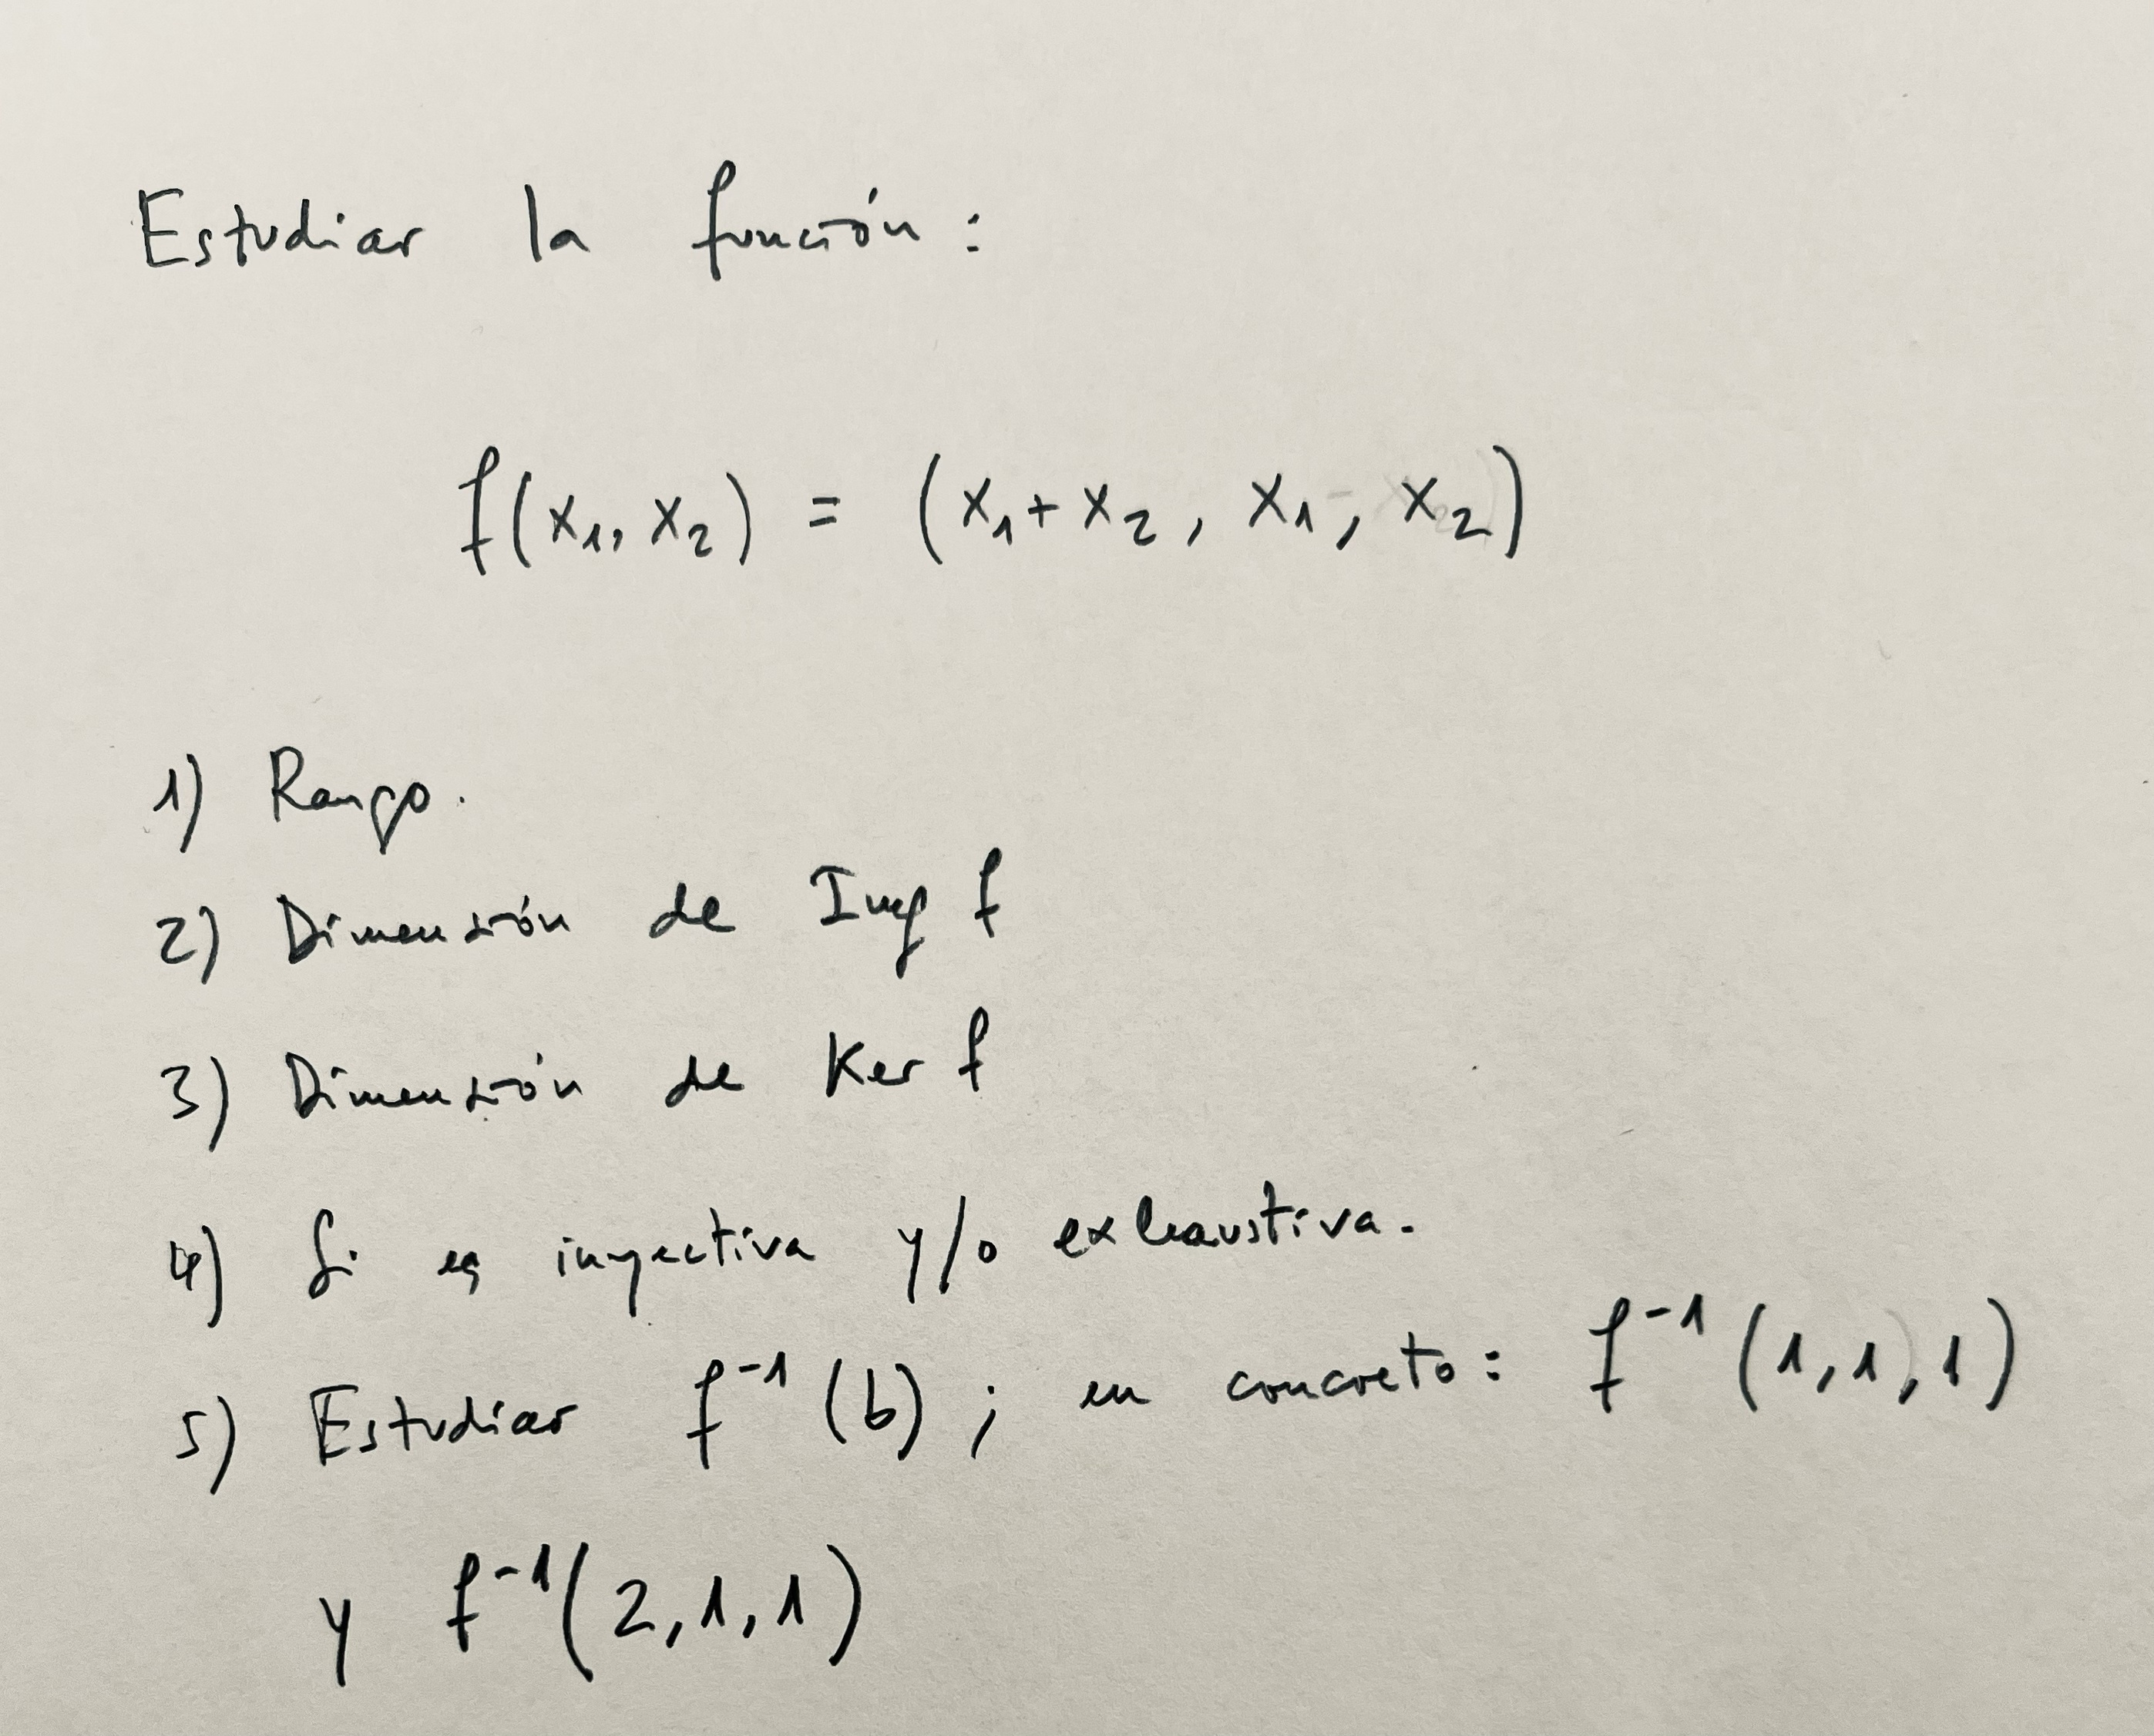 Estudiar la función:
f(x₁, x₂) = (x₁+x₂, x₁, x₂)
1) Rango.
2) Dimensión de Img f
3) Dimensión de Ker f
4) Si es inyectiva y/o exhaustiva.
5) Estudiar f⁻¹(b); en concreto: f⁻¹(1,1,1)
y f⁻¹(2,1,1)